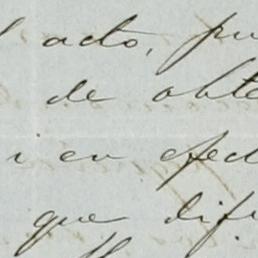 acto, pu
de obte
i en efect
que difi